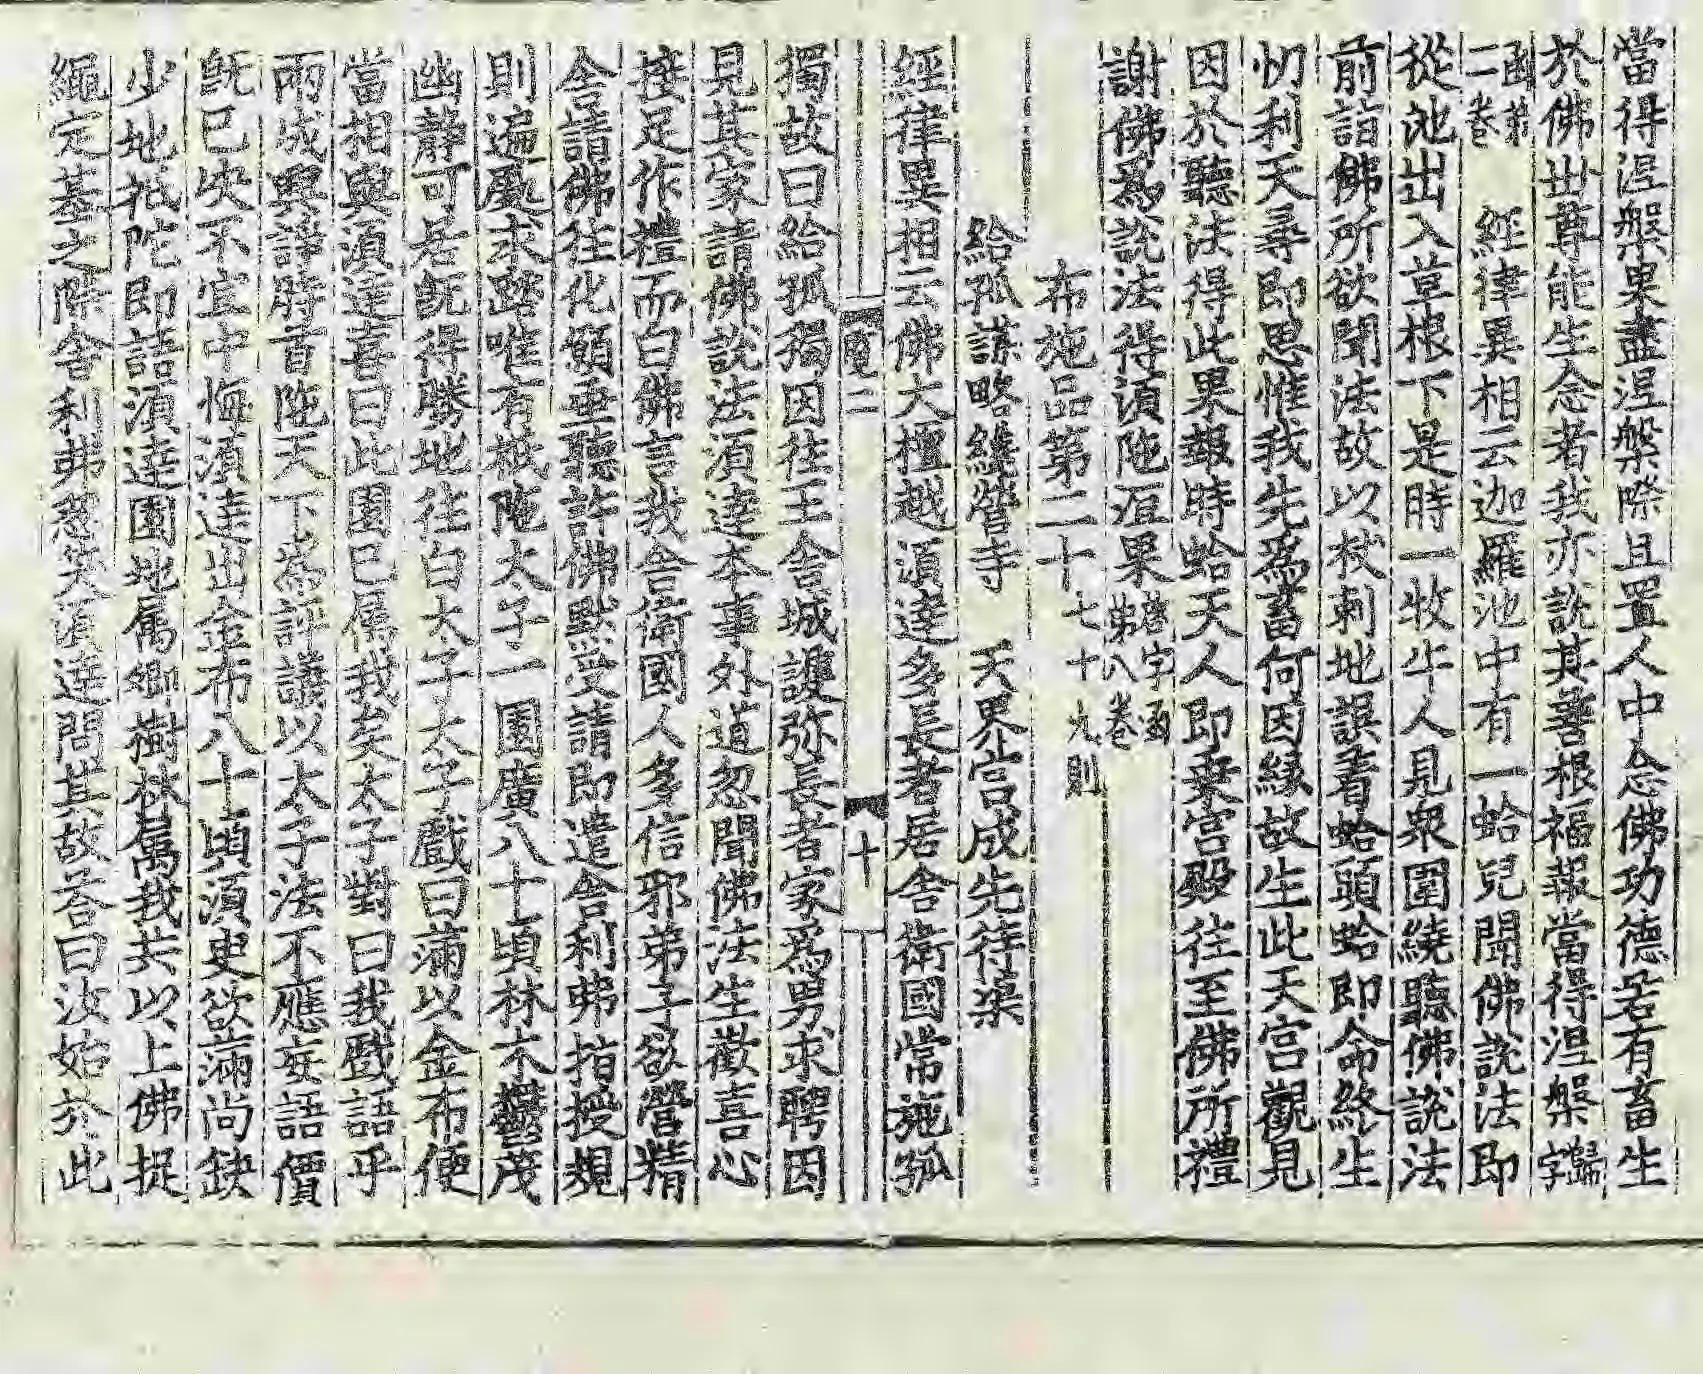 當得涅槃果盡涅槃際且置人中念佛功德若有畜生
於佛世尊能生念者我亦說其善根福報當得涅槃歸字
函第二卷　經律異相云迦羅池中有一蛤兒聞佛說法即
從池出入草根下是時一牧牛人見衆圍繞聽佛說法
前詣佛所欲聞法故以杖刺地誤著蛤頭蛤即命終生
忉利天尋即思惟我先爲畜何因縁故生此天宮觀見
因於聽法得此果報時蛤天人即乗宮殿往至佛所禮
謝佛爲說法得湏陁洹果　字函第八卷
布施品第二十七十九則
給孤謀略繕營寺　天界宮成先待渠
經律異相云佛大檀越湏達多長者居舍衛國常施孤
二
十
獨故曰給孤獨因往王舍城護弥長者家爲男求聘因
見其家請佛說法湏達本事外道忽聞佛法生歡喜心
接足作禮而白佛言我舍衛國人多信邪弟子欲營精
舎請佛往化願垂聽許佛默受請即遣舎利弗指授規
則遍處求踏唯有祇陁太子一園廣八十頃林木欝茂
幽靜可居旣得勝地往白太子太子戲曰滿以金布便
當相與湏達喜曰此園已属我矣太子對曰我戲語乎
兩成興諍時首陁天下爲評議以太子法不應妄語價
旣已决不宜中悔湏達出金布八十頃湏臾欲滿尚缺
少地祇陀即語湏達園地属卿樹林属我共以上佛捉
繩定基之際舎利弗湏達問其故荅曰汝始於此